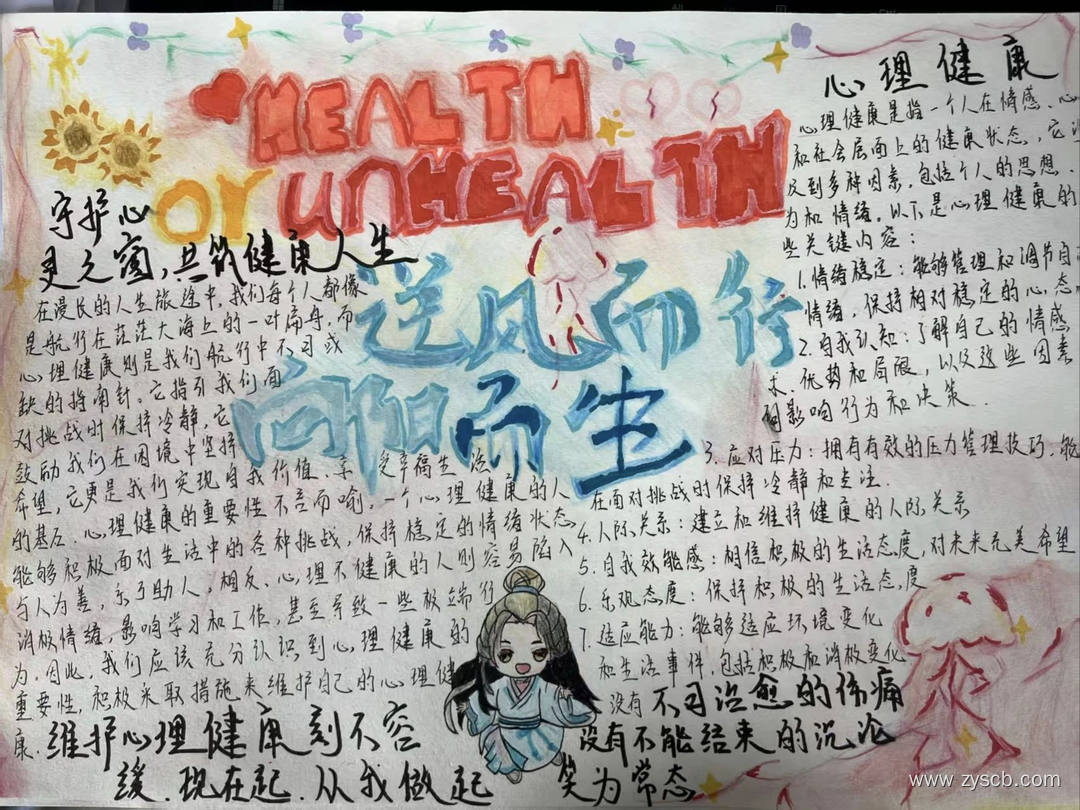 HEALTH
or UNHEALTH
送风而行
向阳而生
守护心
灵之窗，共筑健康人生
在漫长的人生旅途中，我们每个人都像
是航行在茫茫大海上的一叶扁舟，而
心理健康则是我们航行中不可或
缺的指南针。它指引我们面
对挑战时保持冷静，它
鼓励我们在困境中坚持
希望，它更是我们实现自我价值、享受幸福生活
的基石。心理健康的重要性不言而喻，一个心理健康的人
能够积极面对生活中的各种挑战，保持稳定的情绪状态
与人为善，乐于助人，相反，心理不健康的人则容易陷入
消极情绪，影响学习和工作，甚至导致一些极端行
为。因此，我们应该充分认识到心理健康的
重要性，积极采取措施来维护自己的心理健
康.
维护心理健康刻不容
缓.现在起.从我做起
心理健康
心理健康是指一个人在情感、心
和社会层面上的健康状态，它
及到多种因素，包括个人的思想、
为和情绪。以下是心理健康的
些关键内容：
1.情绪稳定：能够管理和调节自
情绪，保持相对稳定的心态
2.自我认知：了解自己的情感
求、优势和局限，以及这些因素
影响行为和决策.
3.应对压力：拥有有效的压力管理技巧，能
在面对挑战时保持冷静和专注.
4.人际关系：建立和维持健康的人际关系
5.自我效能感：相信积极的生活态度，对未来充美希望
6.乐观态度：保持积极的生活态度
7.适应能力：能够适应环境变化
和生活事件，包括积极和消极变化
没有不可治愈的伤痛
没有不能结束的沉沦
笑为常态
www.zyscb.com